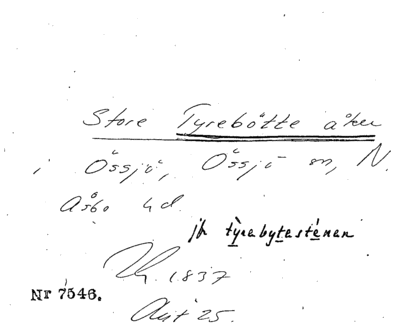 Store Tyrebötte åker
i Össjö, Össjö sn, N.
Åsbo hd.
jfr tyrabytasténen
1837
Nr 7546.
25.